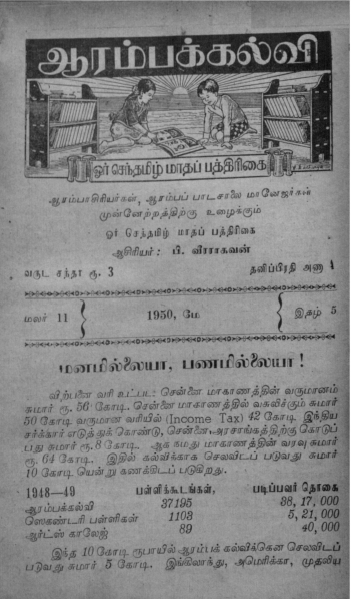 ஆரம்பக்கல்வி
ஓர் செந்தமிழ் மாதப் பத்திரிகை
ஆரம்பாசிரியர்கள், ஆரம்பப் பாடசாலை மானேஜர்கள்
முன்னேற்றத்திற்கு உழைக்கும்
ஓர் செந்தமிழ் மாதப் பத்திரிகை
ஆசிரியர்: பி. வீரராகவன்
வருட சந்தா ரூ. 3 தனிப்பிரதி அணா 4
மலர் 11 1950, மே இதழ் 5
மனமில்லையா, பணமில்லையா !
விற்பனை வரி உட்பட சென்னை மாகாணத்தின் வருமானம்
சுமார் ரூ. 56 கோடி. சென்னை மாகாணத்தில் வசூலிக்கும் சுமார்
50 கோடி வருமான வரியில் (Income Tax) 42 கோடி இந்திய
சர்க்கார் எடுத்துக் கொண்டு, சென்னை அரசாங்கத்திற்கு கொடுப்
பது சுமார் ரூ. 8 கோடி. ஆக நமது மாகாணத்தின் வரவு சுமார்
ரூ. 64 கோடி. இதில் கல்விக்காக செலவிடப் படுவது சுமார்
10 கோடி யென்று கணக்கிடப் படுகிறது.
1948—49 பள்ளிக்கூடங்கள், படிப்பவர் தொகை
ஆரம்பக்கல்வி 37195 38, 17, 000
ஸெகண்டரி பள்ளிகள் 1103 5, 21, 000
ஆர்ட்ஸ் காலேஜ் 89 40, 000
இந்த 10 கோடி ரூபாயில் ஆரம்பக் கல்விக்கென செலவிடப்
படுவது சுமார் 5 கோடி. இங்கிலாந்து, அமெரிக்கா, முதலிய